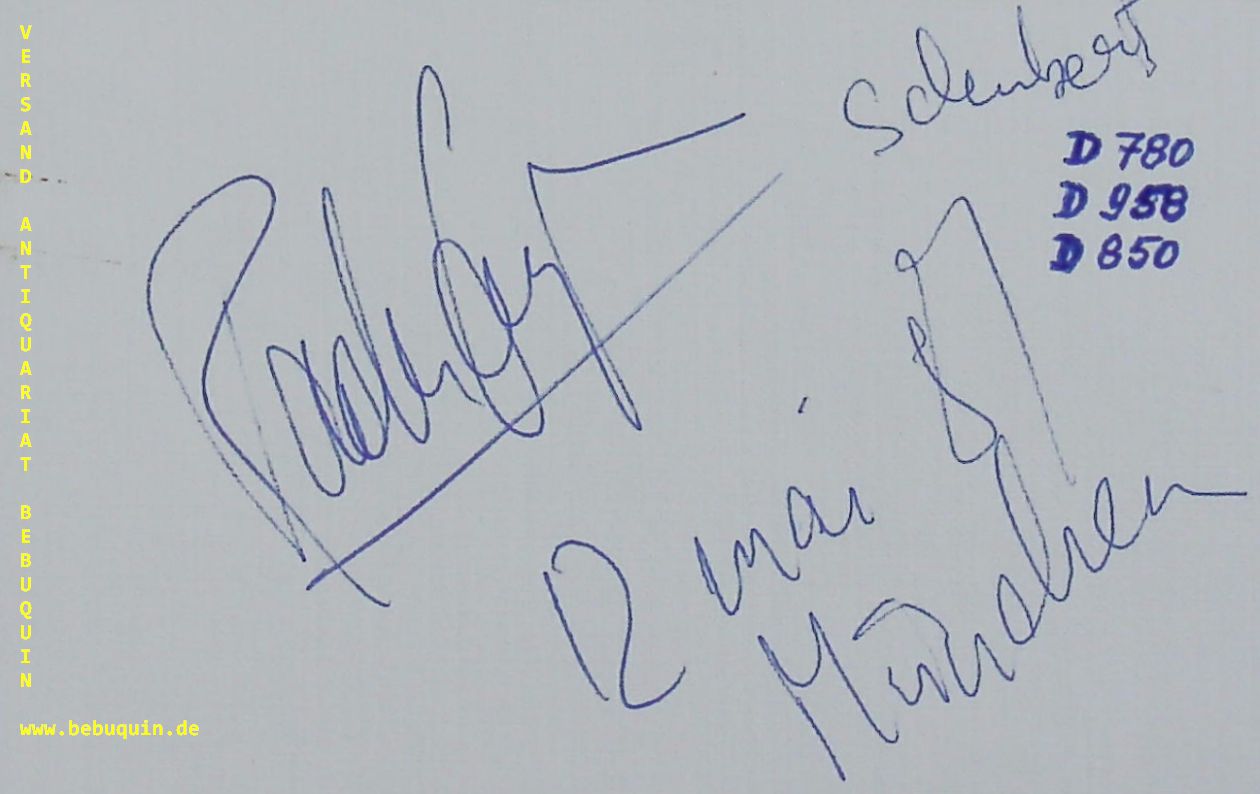 VERSAND ANTIQUARIAT BEBUQUIN
www.bebuquin.de
Schubert
D 780
D 958
D 850
12 mai 87
München